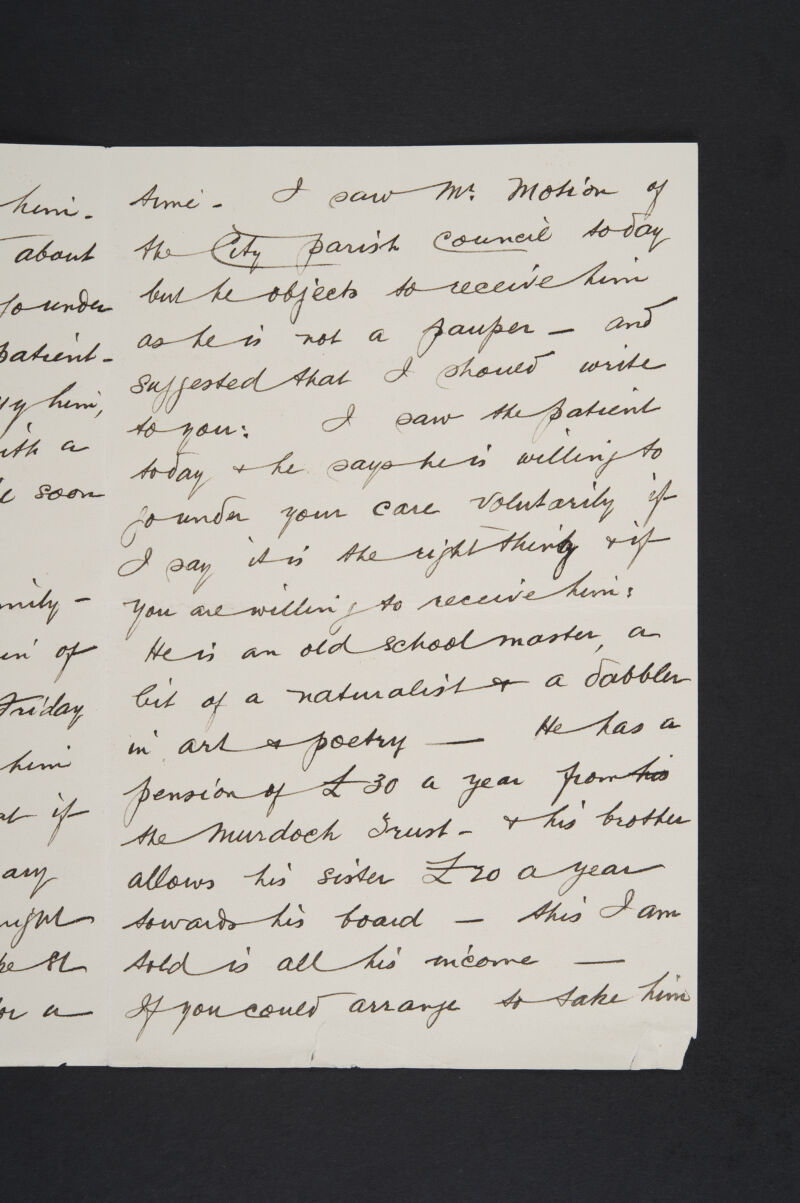 him -
about
go under
patient -
him,
ith a
soon
mily -
in of
Friday
him
at if
any
ight
be St
or a
time - I saw Mr. Motion of
the City parish council today
but he objects to receive him
as he is not a pauper - and
suggested that I should write
to you: I saw the patient
today & he says he is willing to
go under your care volutarily if
I say it is the right thing & if
you are willing to receive him:
He is an old school master, a
bit of a naturalist & a dabbler
in art & poetry — He has a
pension of £30 a year from his
the Murdoch Trust - & his brother
allows his sister £20 a year
towards his board — this I am
told is all his income —
If you could arrange to take him